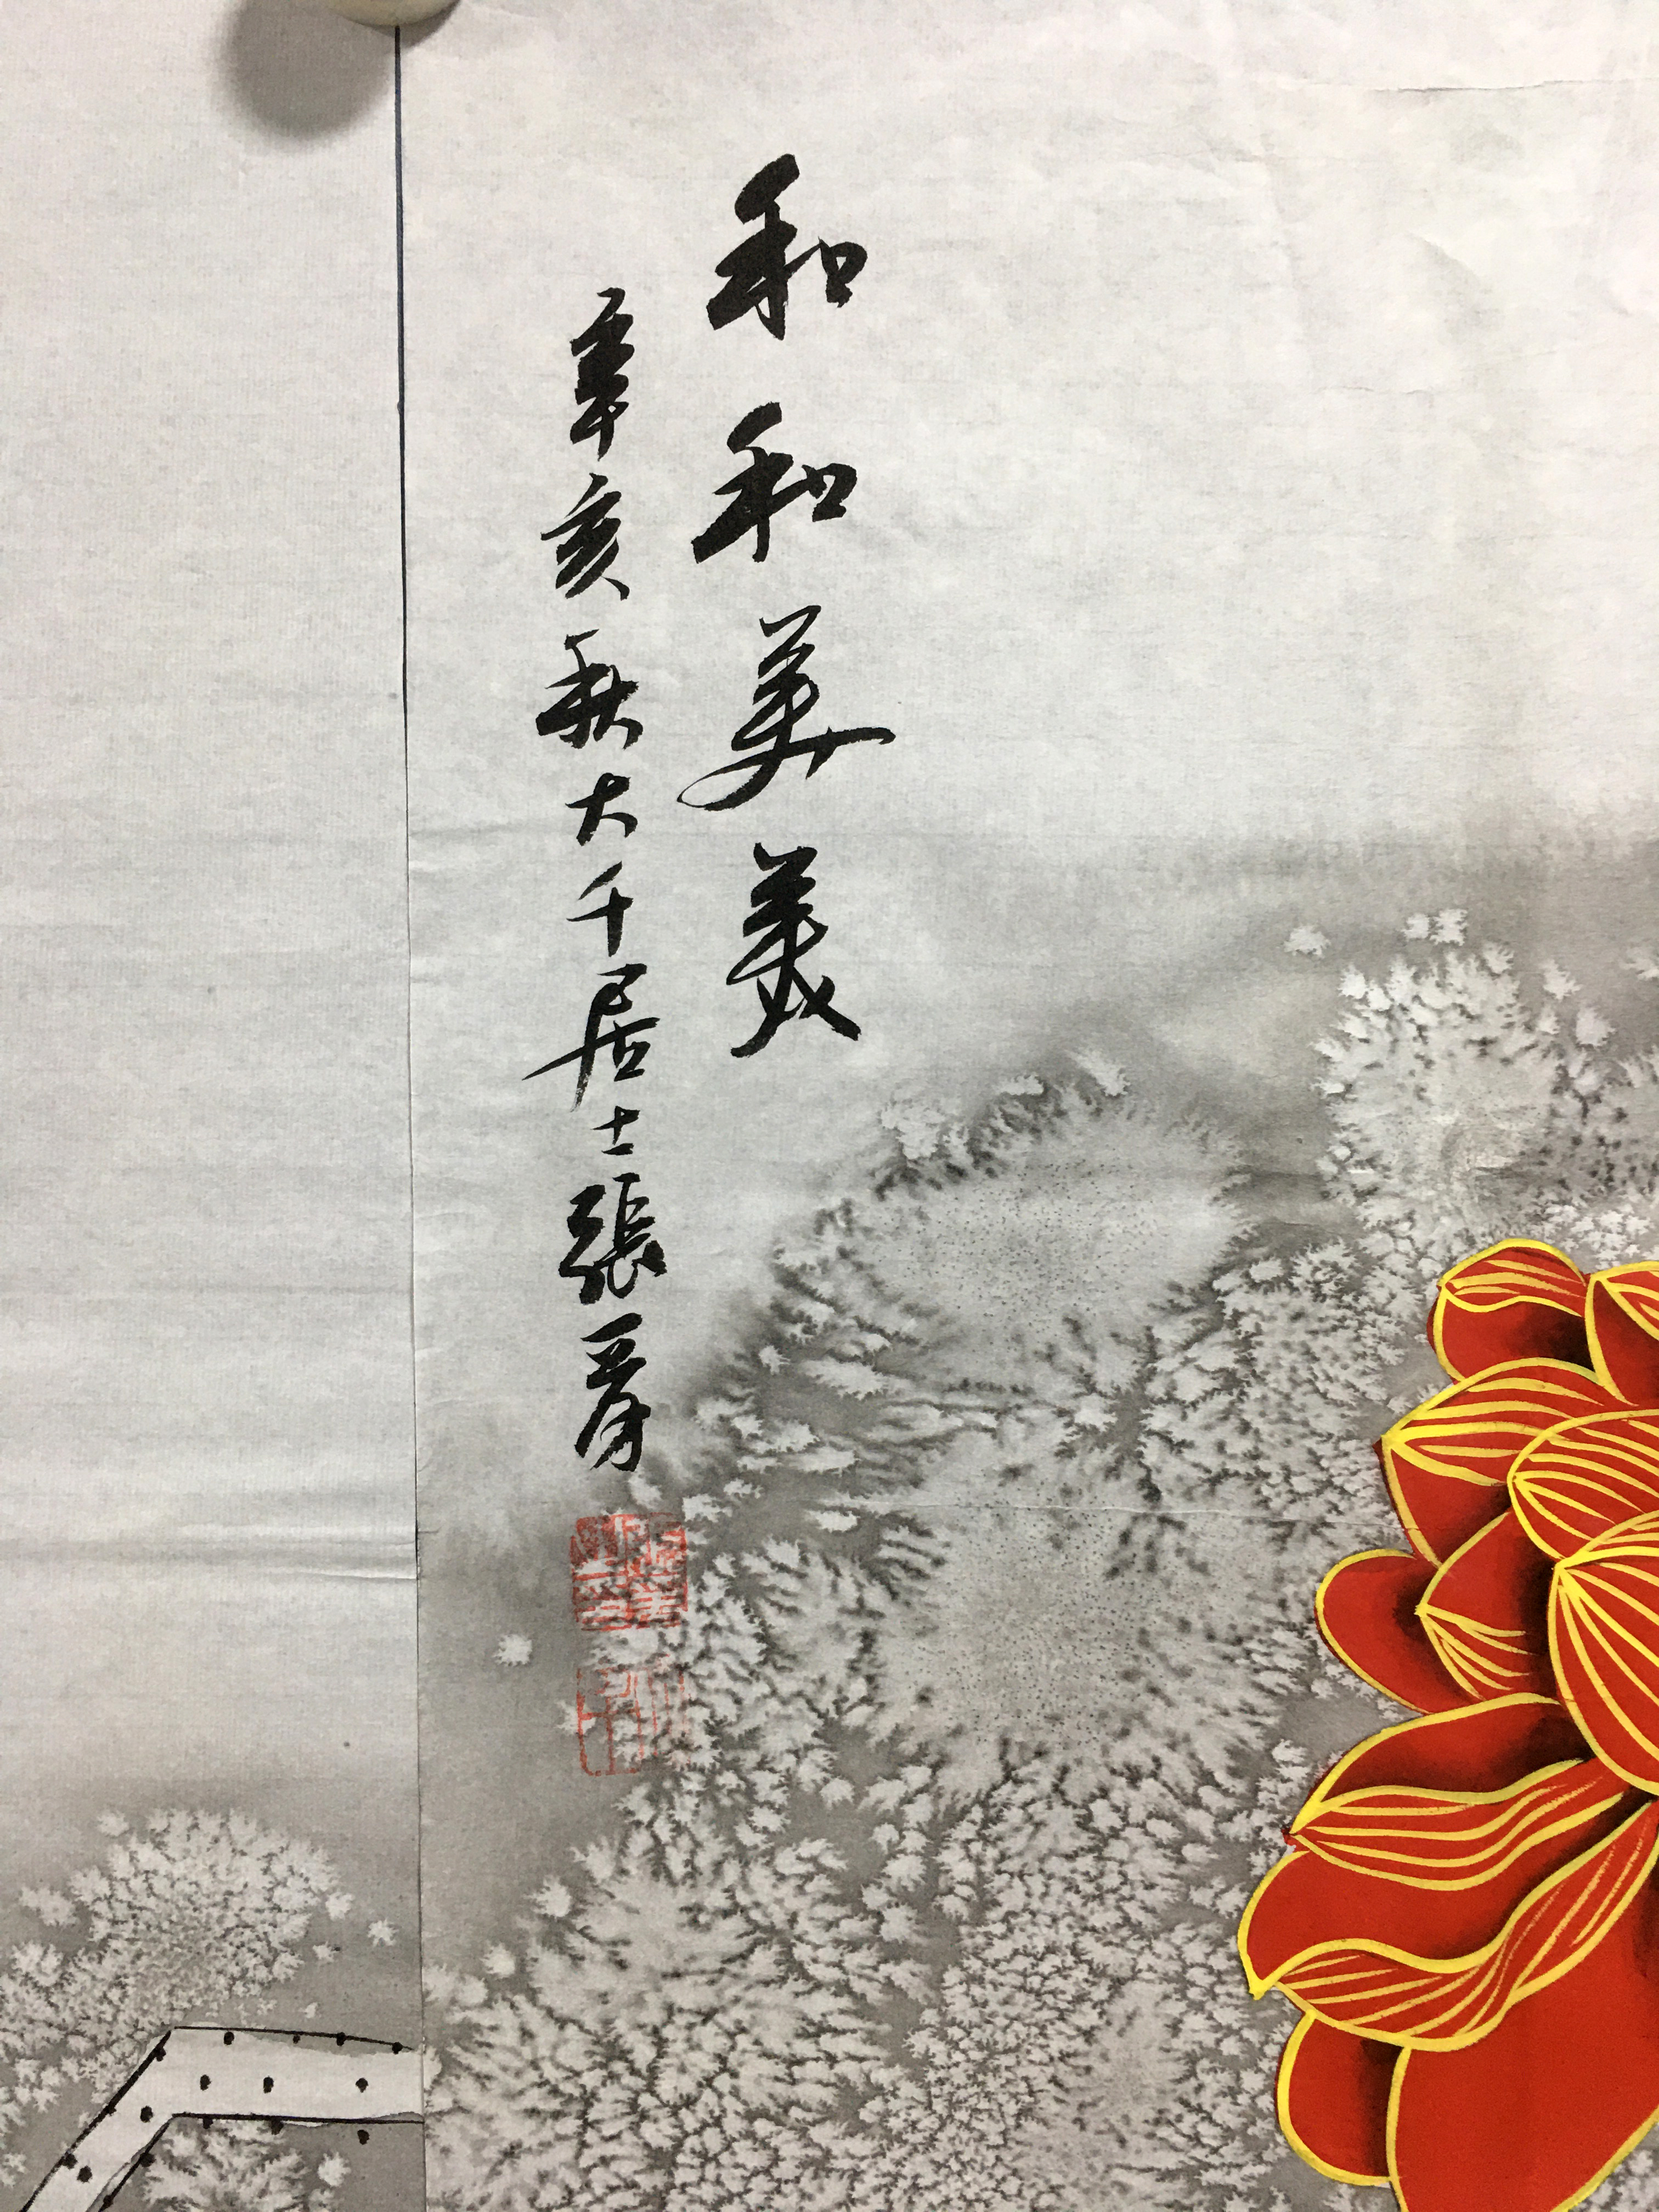 和和美美
辛亥秋大千居士張爰